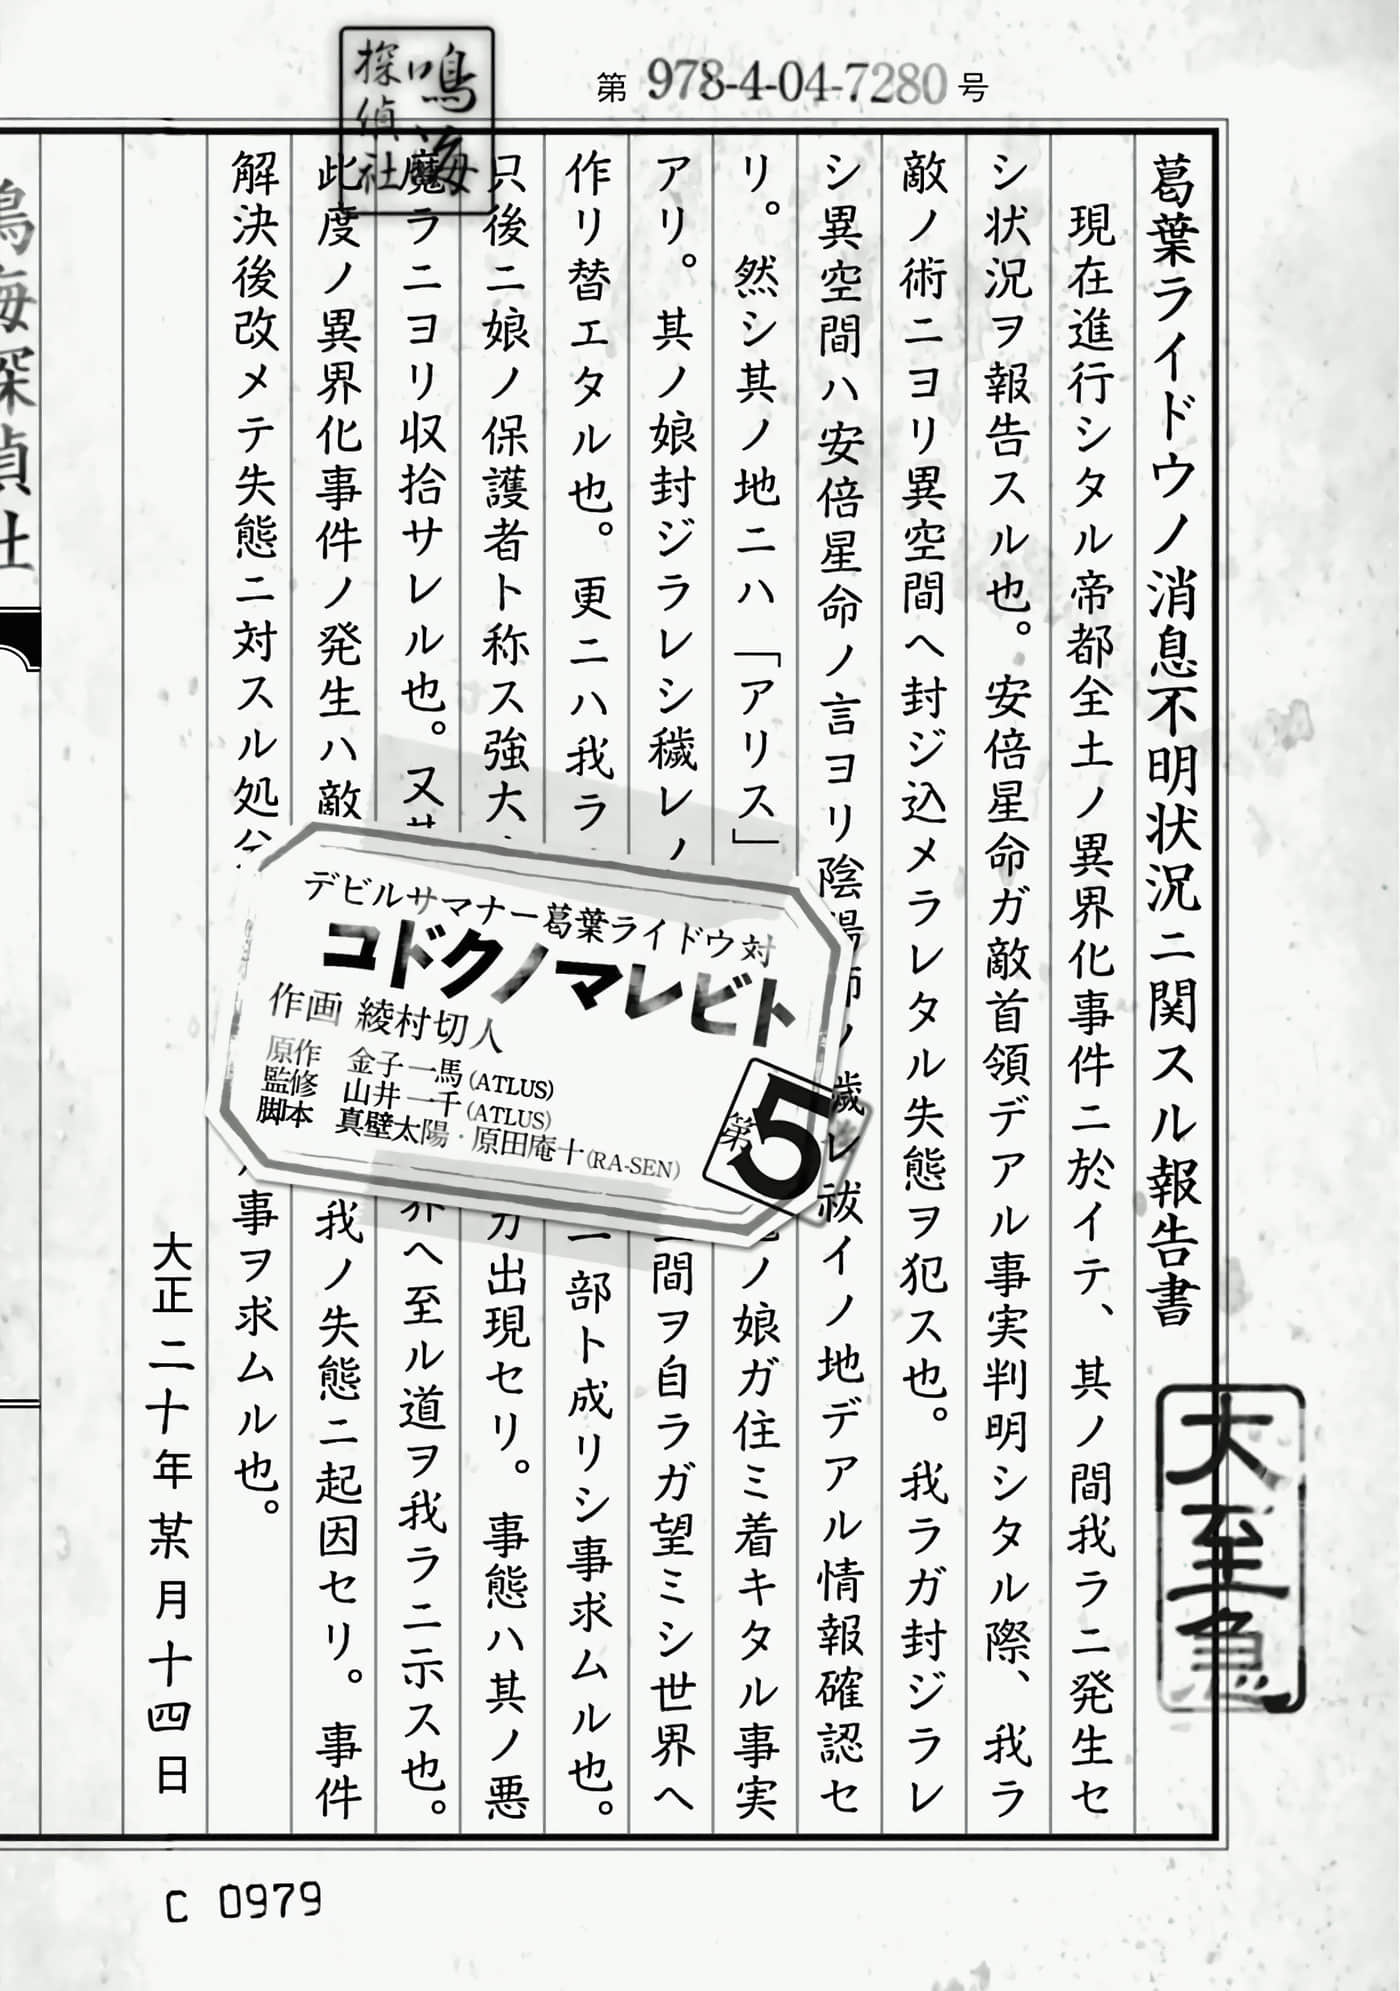 第 978-4-04-7280 号
鳴海
探偵社
葛葉ライドウノ消息不明状況ニ関スル報告書
大至急
現在進行シタル帝都全土ノ異界化事件ニ於イテ、其ノ間我ラニ発生セ
シ状況ヲ報告スル也。安倍星命ガ敵首領デアル事実判明シタル際、我ラ
敵ノ術ニヨリ異空間ヘ封ジ込メラレタル失態ヲ犯ス也。我ラガ封ジラレ
シ異空間ハ安倍星命ノ言ヨリ陰陽師ノ歳レ祓イノ地デアル情報確認セ
リ。然シ其ノ地ニハ「アリス」ノ娘ガ住ミ着キタル事実
アリ。其ノ娘封ジラレシ穢レノ間ヲ自ラガ望ミシ世界ヘ
作リ替エタル也。更ニハ我ラ一部ト成リシ事求ムル也。
只後ニ娘ノ保護者ト称ス強大ガ出現セリ。事態ハ其ノ悪
魔ラニヨリ収拾サレル也。又界ヘ至ル道ヲ我ラニ示ス也。
此度ノ異界化事件ノ発生ハ敵我ノ失態ニ起因セリ。事件
解決後改メテ失態ニ対スル処分事ヲ求ムル也。
大正二十年某月十四日
鳴海探偵社
デビルサマナー葛葉ライドウ対
コドクノマレビト
作画 綾村切人
原作 金子一馬(ATLUS)
監修 山井一千(ATLUS)
脚本 真壁太陽・原田庵十(RA-SEN)
第5
C 0979